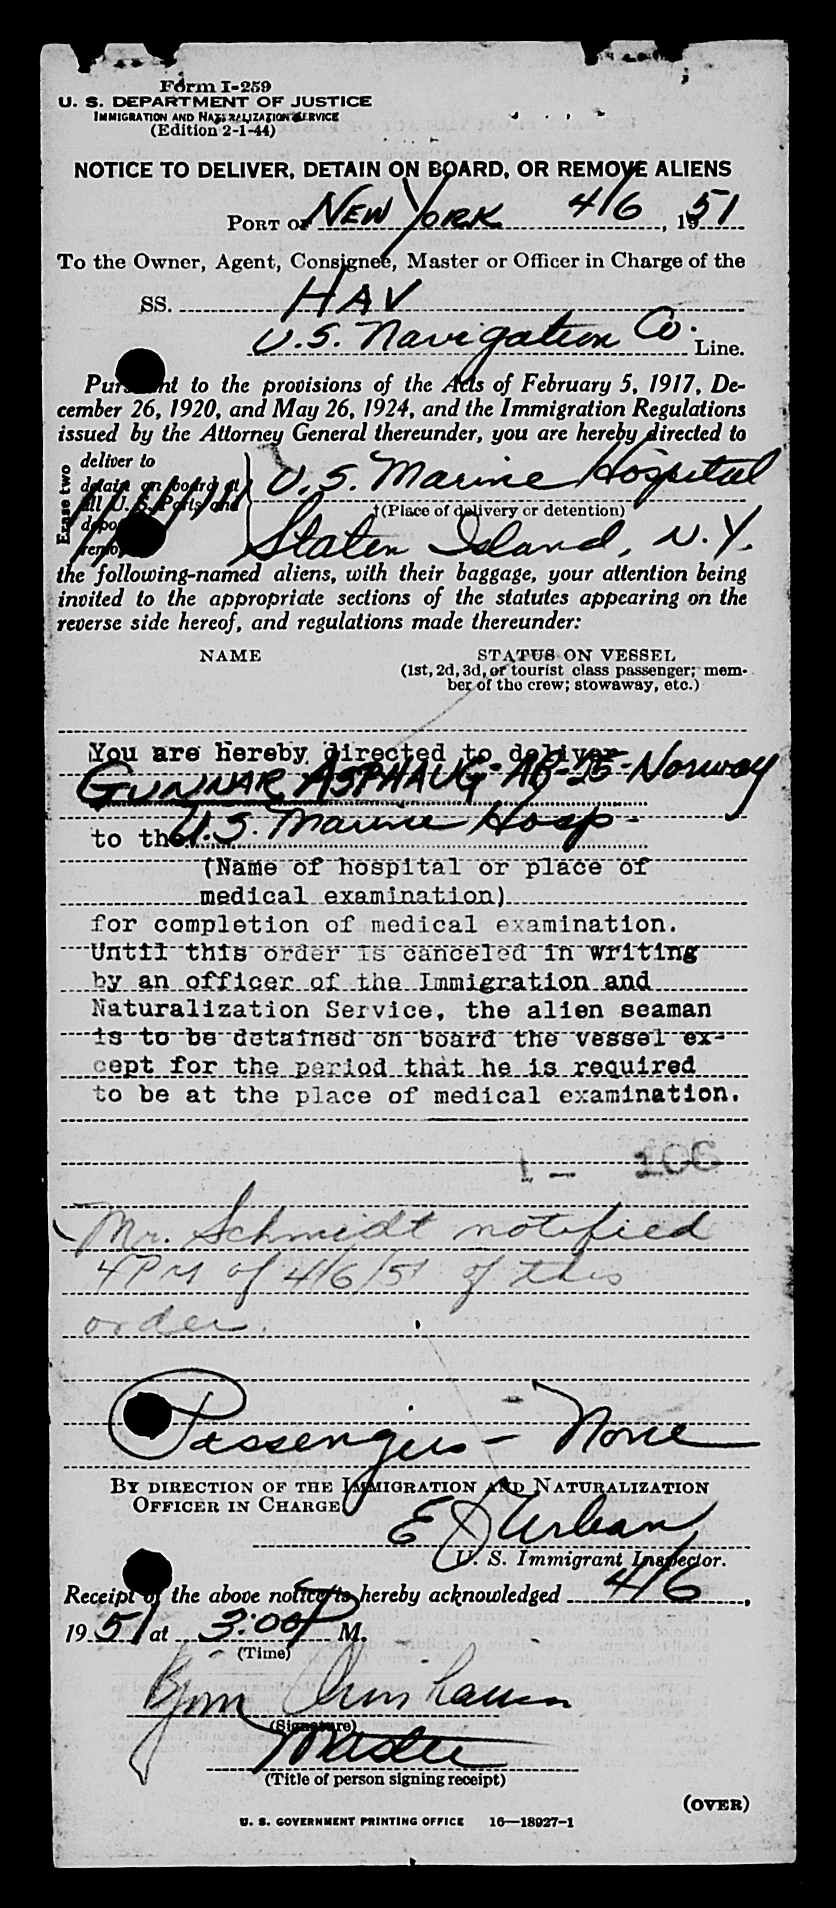 Form I-259
U. S. DEPARTMENT OF JUSTICE
IMMIGRATION AND NATURALIZATION SERVICE
(Edition 2-1-44)
NOTICE TO DELIVER, DETAIN ON BOARD, OR REMOVE ALIENS
PORT OF NEW YORK 4/6, 1951
To the Owner, Agent, Consignee, Master or Officer in Charge of the
SS. HAV
U.S. Navigation Co. Line.
Pursuant to the provisions of the Acts of February 5, 1917, De-
cember 26, 1920, and May 26, 1924, and the Immigration Regulations
issued by the Attorney General thereunder, you are hereby directed to
Erase two
deliver to
detain on board at
all U. S. Ports and
U.S. Marine Hospital
†(Place of delivery or detention)
Staten Island, N.Y.
the following-named aliens, with their baggage, your attention being
invited to the appropriate sections of the statutes appearing on the
reverse side hereof, and regulations made thereunder:
NAME STATUS ON VESSEL
(1st, 2d, 3d, or tourist class passenger; mem-
ber of the crew; stowaway, etc.)
You are hereby directed to deliver
GUNNAR ASPHAUG-AB-25-Norway
to the U.S. Marine Hosp-
(Name of hospital or place of
medical examination)
for completion of medical examination.
Until this order is canceled in writing
by an officer of the Immigration and
Naturalization Service, the alien seaman
is to be detained on board the vessel ex-
cept for the period that he is required
to be at the place of medical examination.
1 - 106
Mr. Schmidt notified
4PM of 4/6/51 of this
order.
Passengers - None
BY DIRECTION OF THE IMMIGRATION AND NATURALIZATION
OFFICER IN CHARGE
E J Urban
U. S. Immigrant Inspector.
Receipt of the above notice is hereby acknowledged 4/6,
1951 at 3:00 P M.
(Time)
Bjorn
(Signature)
Master
(Title of person signing receipt)
(OVER)
U. S. GOVERNMENT PRINTING OFFICE 16—18927-1